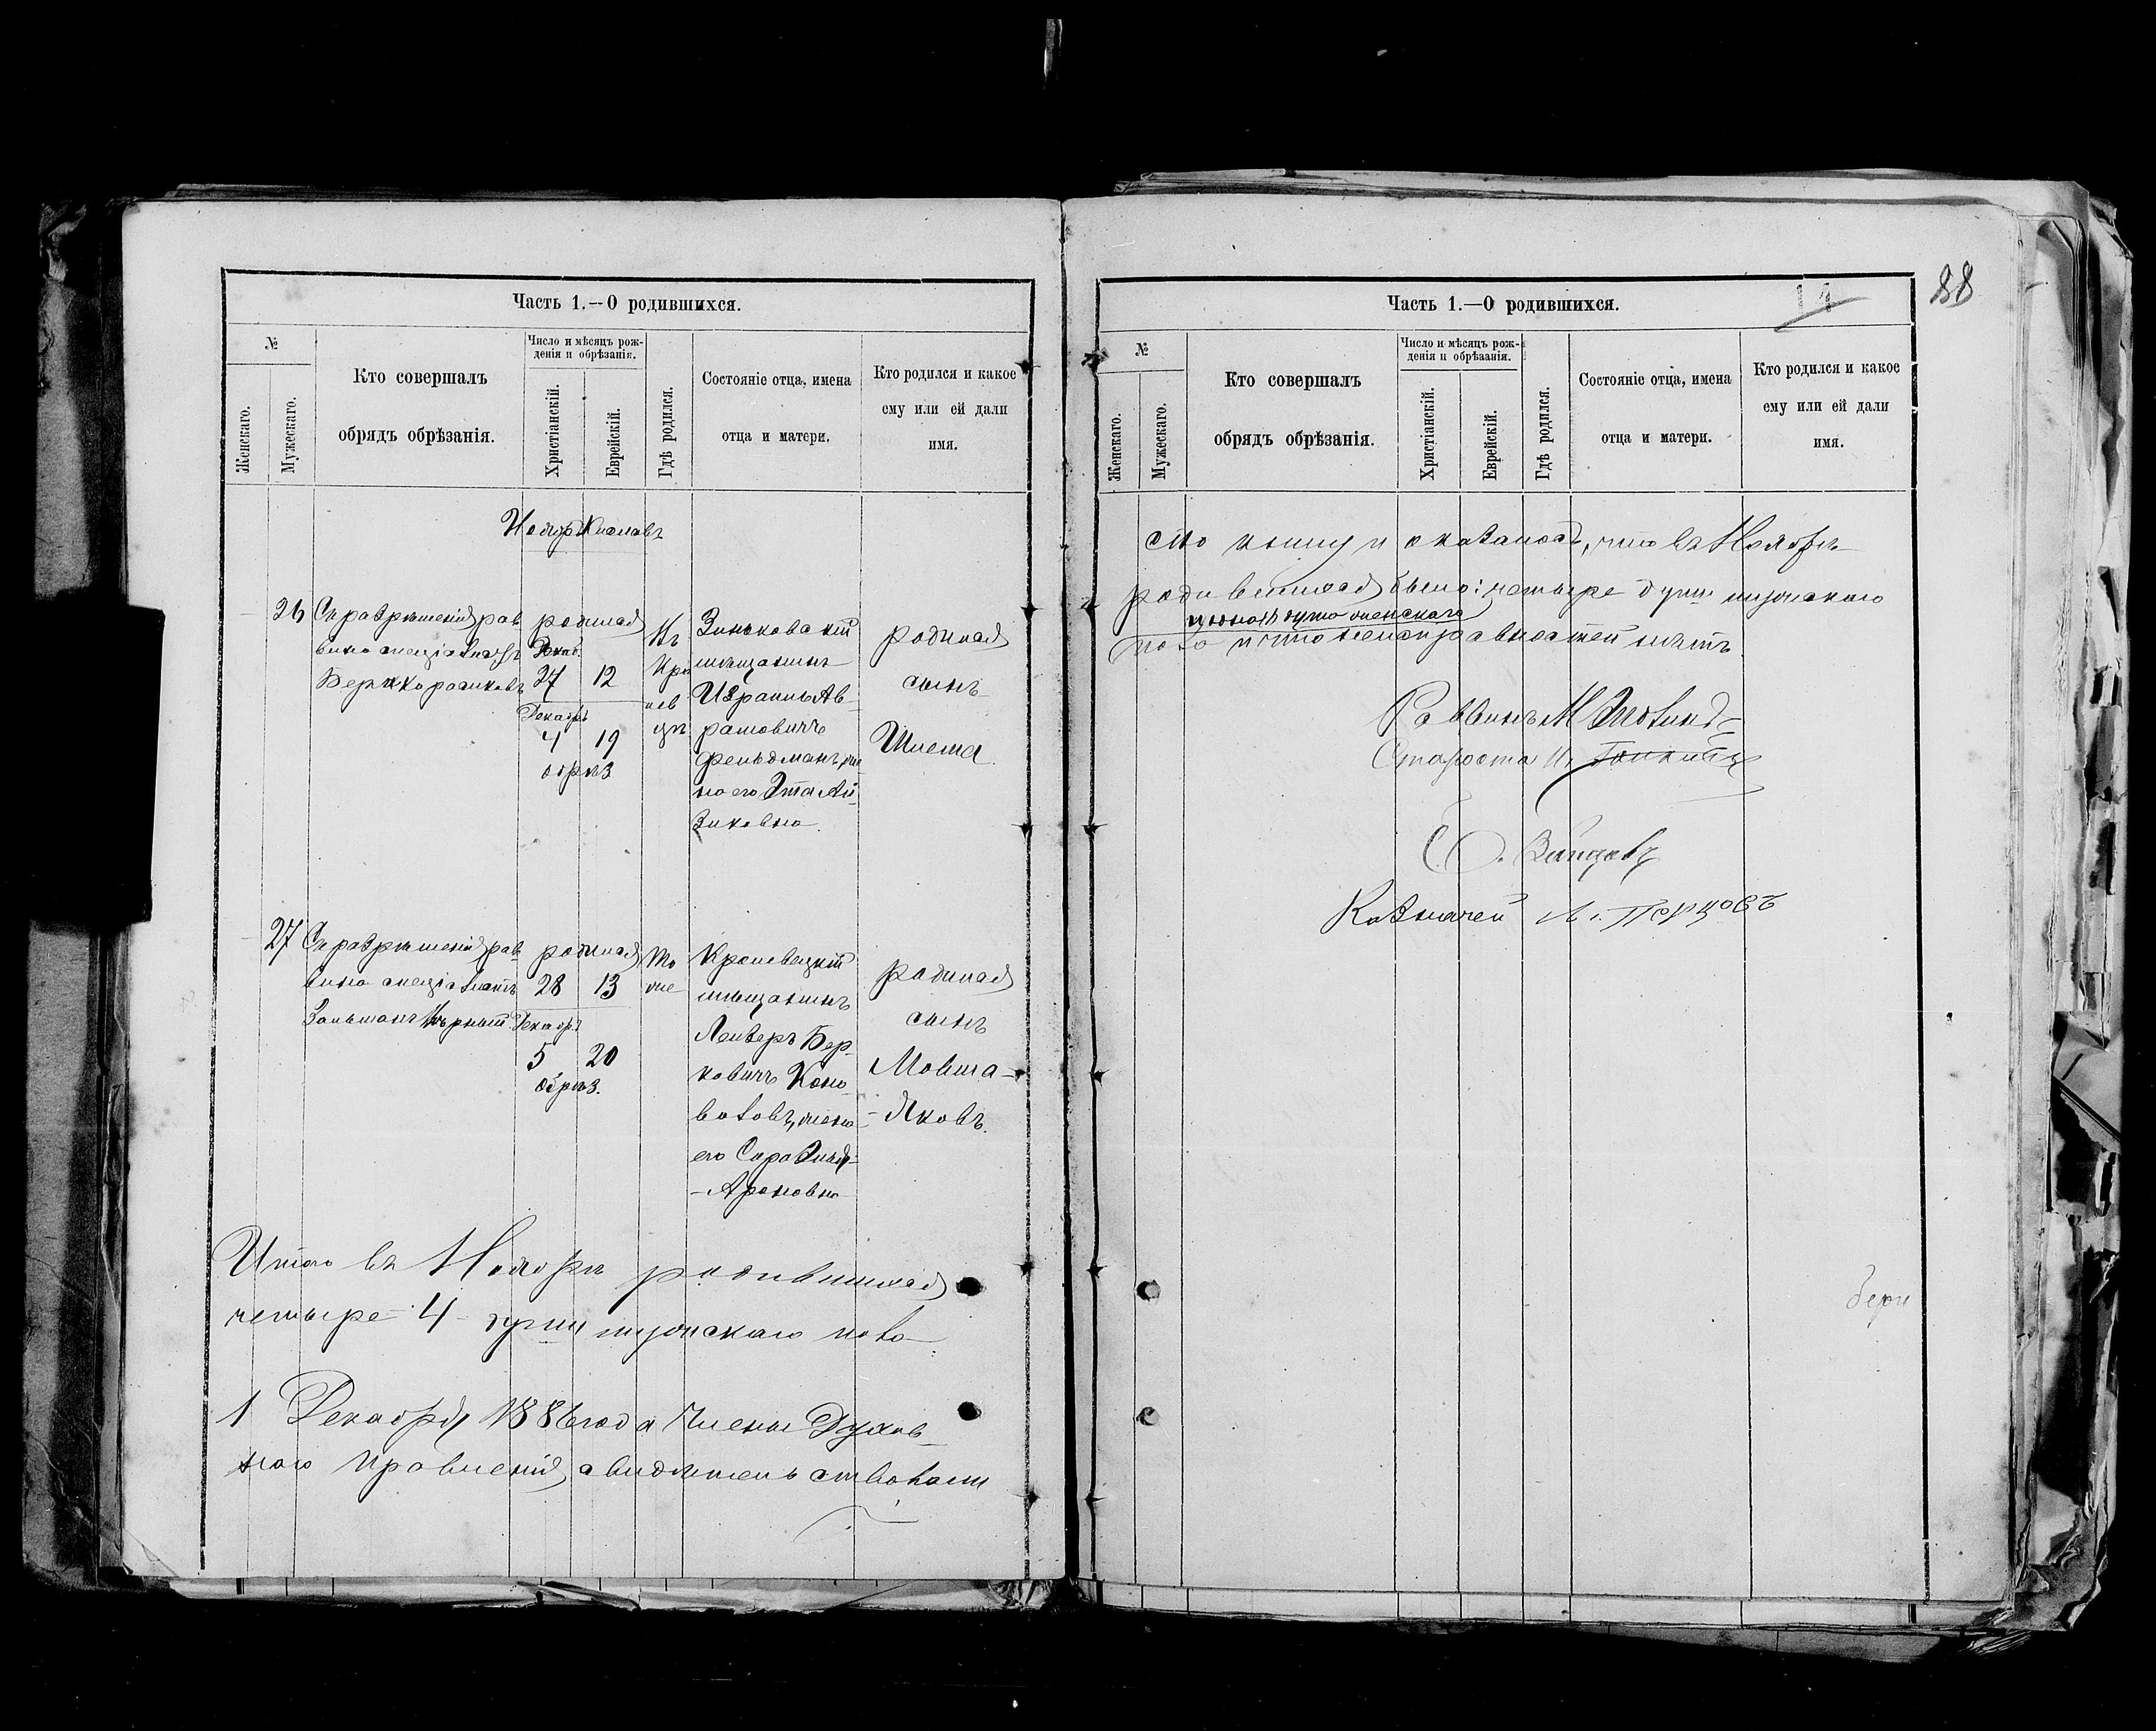 Часть 1.—О родившихся.
№
Женскаго.
Мужескаго.
Кто совершалъ
обрядъ обрѣзанія.
Число и мѣсяцъ рож-
денія и обрѣзанія.
Христіанскій.
Еврейскій.
Гдѣ родился.
Состояніе отца, имена
отца и матери.
Кто родился и какое
ему или ей дали
имя.
Ноябрь Киславъ
26
Съ разрѣшенія рав
вина
Берко
родился
27 12
Декабрь
4 19
обрѣз
Въ
Кро
лев
цѣ
Зиньковскій
мѣщанинъ
Израиль Ав
рамовичъ
Фельдманъ, же
на его Эта Ай
зиковна
родился
сынъ
Шлема
27
Съ разрѣшенія рав
вина
Зальманъ Черный
родился
28 13
Декабрь
5 20
обрѣз.
То
же
Кролевецкій
мѣщанинъ
Лейзеръ Бер
ковичъ Коно
валовъ, жена
его Сира
Ароновна
родился
сынъ
Мовша-
-Яковъ.
Итого въ Ноябрѣ родившихся
четыре 4 души мужскаго пола
1 Декабря 1886 года Члены Духов
наго Правленія свидѣтельствовали
Часть 1.—О родившихся.
14
88
№
Женскаго.
Мужескаго.
Кто совершалъ
обрядъ обрѣзанія.
Число и мѣсяцъ рож-
денія и обрѣзанія.
Христіанскій.
Еврейскій.
Гдѣ родился.
Состояніе отца, имена
отца и матери.
Кто родился и какое
ему или ей дали
имя.
сію книгу и оказалось, что въ Ноябрѣ
родившихся было: четыре души мужскаго
и одна душа женскаго
пола и что неисправностей нѣтъ
Раввинъ М
Староста И.
Казначей Л. Перцовъ